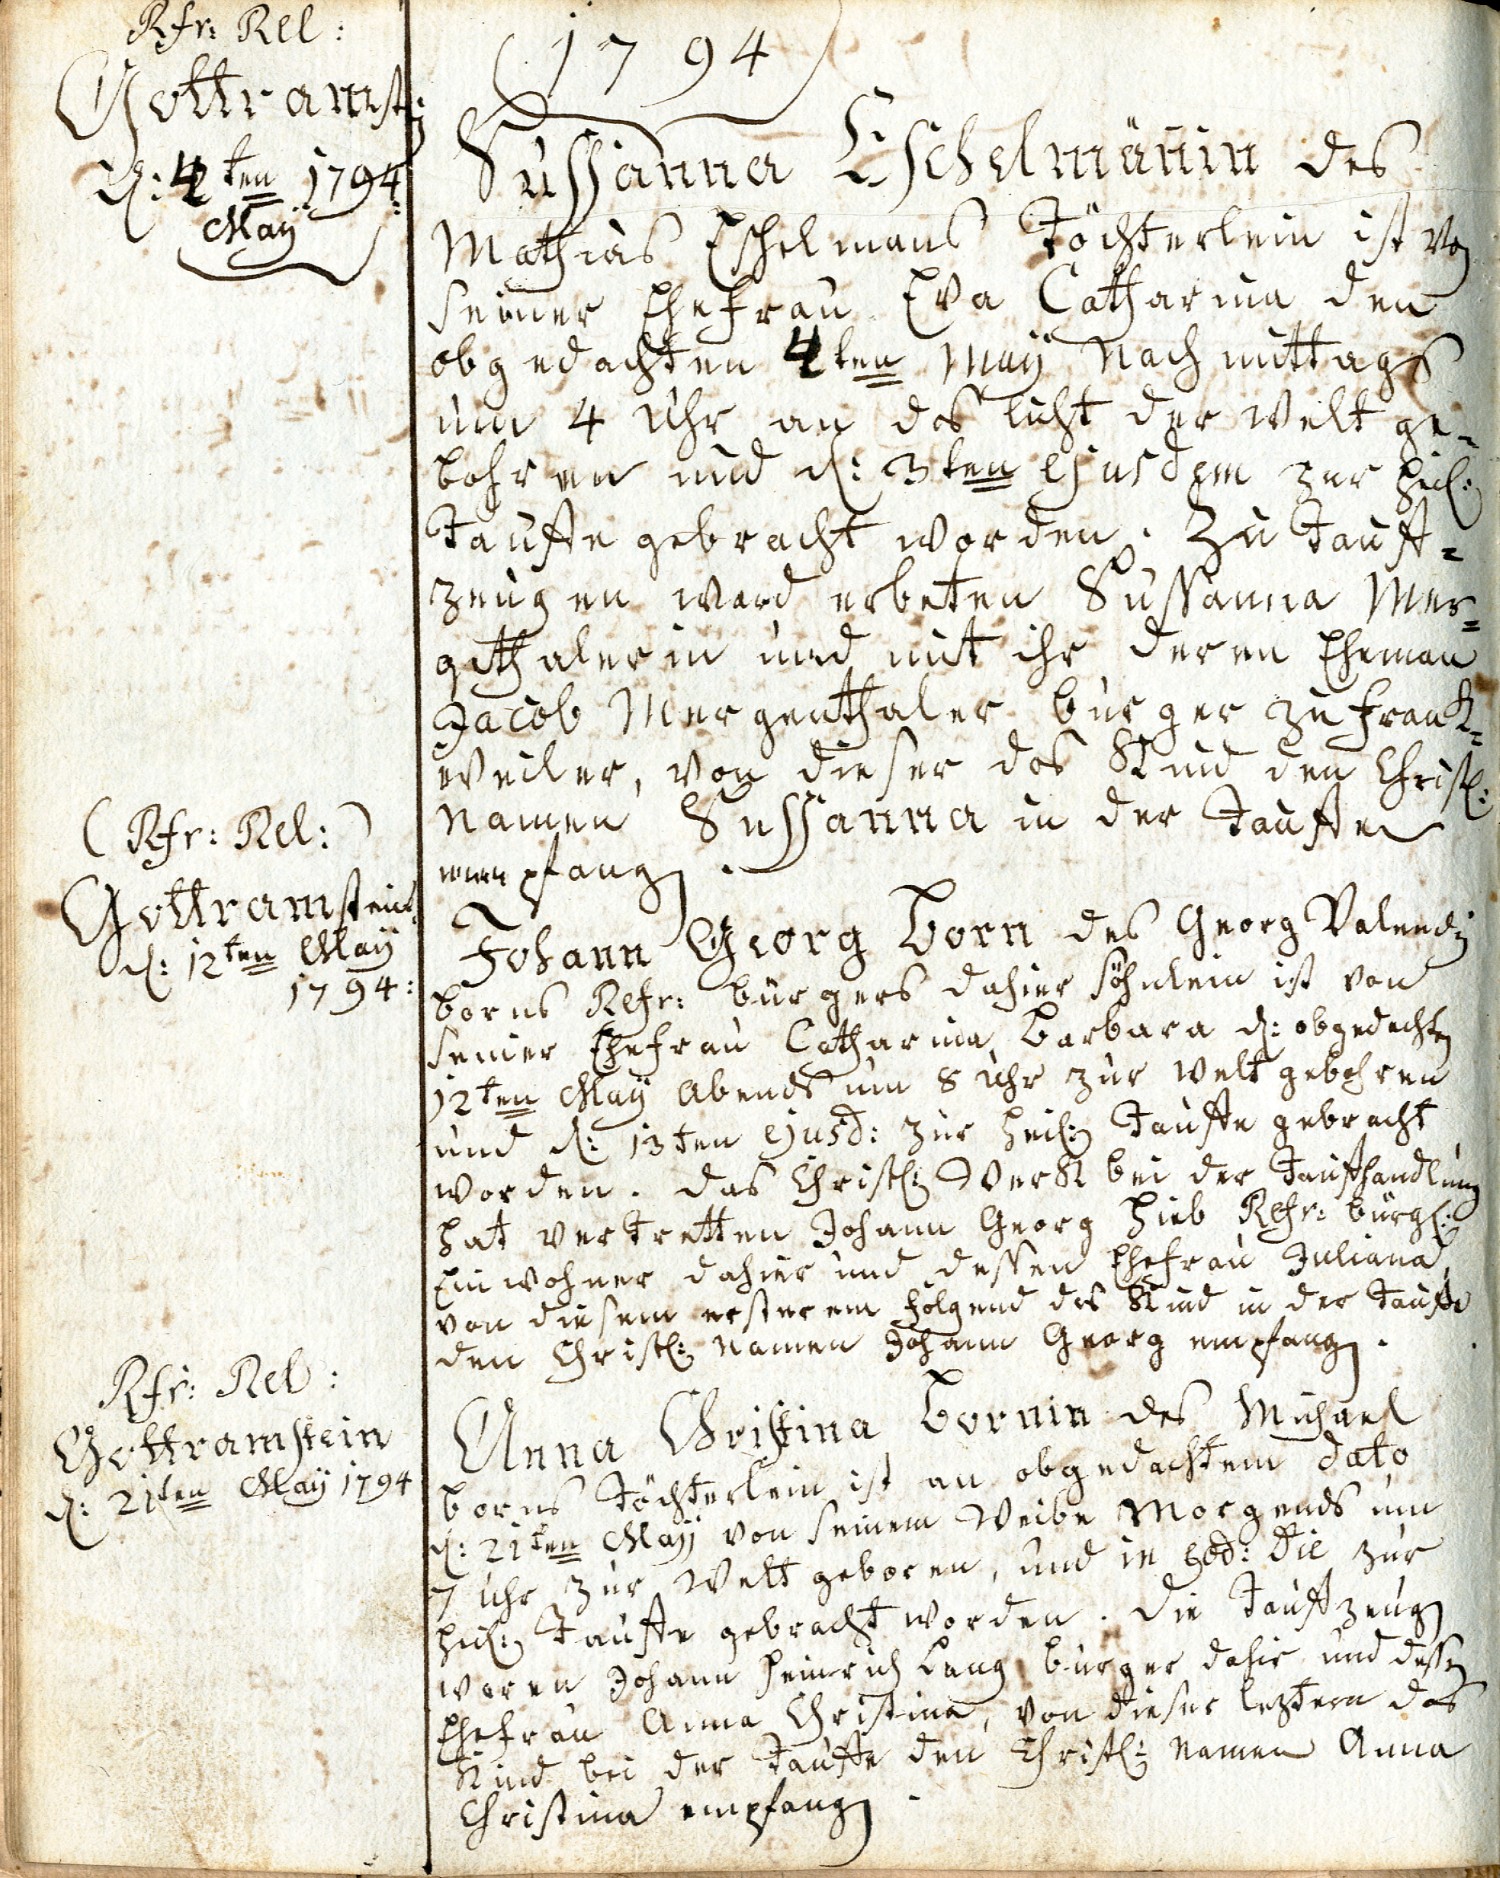 Rfr: Rel:
Gottramst:
d: 4ten 1794:
Maÿ
(1794)
Sussanna Eschelmänin des
Mathias Eschelmans Töchterlein ist von
seiner Ehefrau Eva Catharina den
obgedachten 4ten Maÿ Nachmittags
um 4 Uhr an das Licht der Welt ge=
bohren und d: 3ten ejusdem zur heil:
Tauffe gebracht worden. Zu Tauff=
zeugen ward erbeten Sussanna Mer=
gethalerin und mit ihr deren Eheman
Jacob Mergenthaler burger zu Frank=
weiler, von dieser das Kind den Christl:
Namen Sussanna in der Tauffe
empfang.
(Rfr: Rel:)
Gottramstein
d: 12ten Maÿ
1794:
Johann Georg Born des Georg Valendin
borns Refr: bürgers dahier söhnlein ist von
seiner Ehefrau Catharina Barbara d: obgedachten
12ten Maÿ Abends um 8 Uhr zur Welt gebohren
und d: 13ten ejusd: zur heil: Tauffe gebracht
worden. Das Christl: Werk bei der Tauffhandlung
hat vertretten Johann Georg Hieb Refr: bürgl:
Einwohner dahier und dessen Ehefrau Juliana,
von diesem ersterem folgend das Kind in der Tauffe
den Christl: Namen Johann Georg empfang.
Rfr: Rel:
Gottramstein
d: 21ten Maÿ 1794
Anna Christina Bornin des Michael
borns Töchterlein ist an obgedachtem dato
d: 21ten Maÿ von seinem Weibe Morgends um
7 Uhr zur Welt geboren, und in eod: die zur
heil: Tauffe gebracht worden. Die Tauffzeugen
waren Johann Heinrich Lang burger dahie und dessen
Ehefrau Anna Christina, von dieser leztern das
Kind bei der Tauffe den Christl: Namen Anna
Christina empfang.